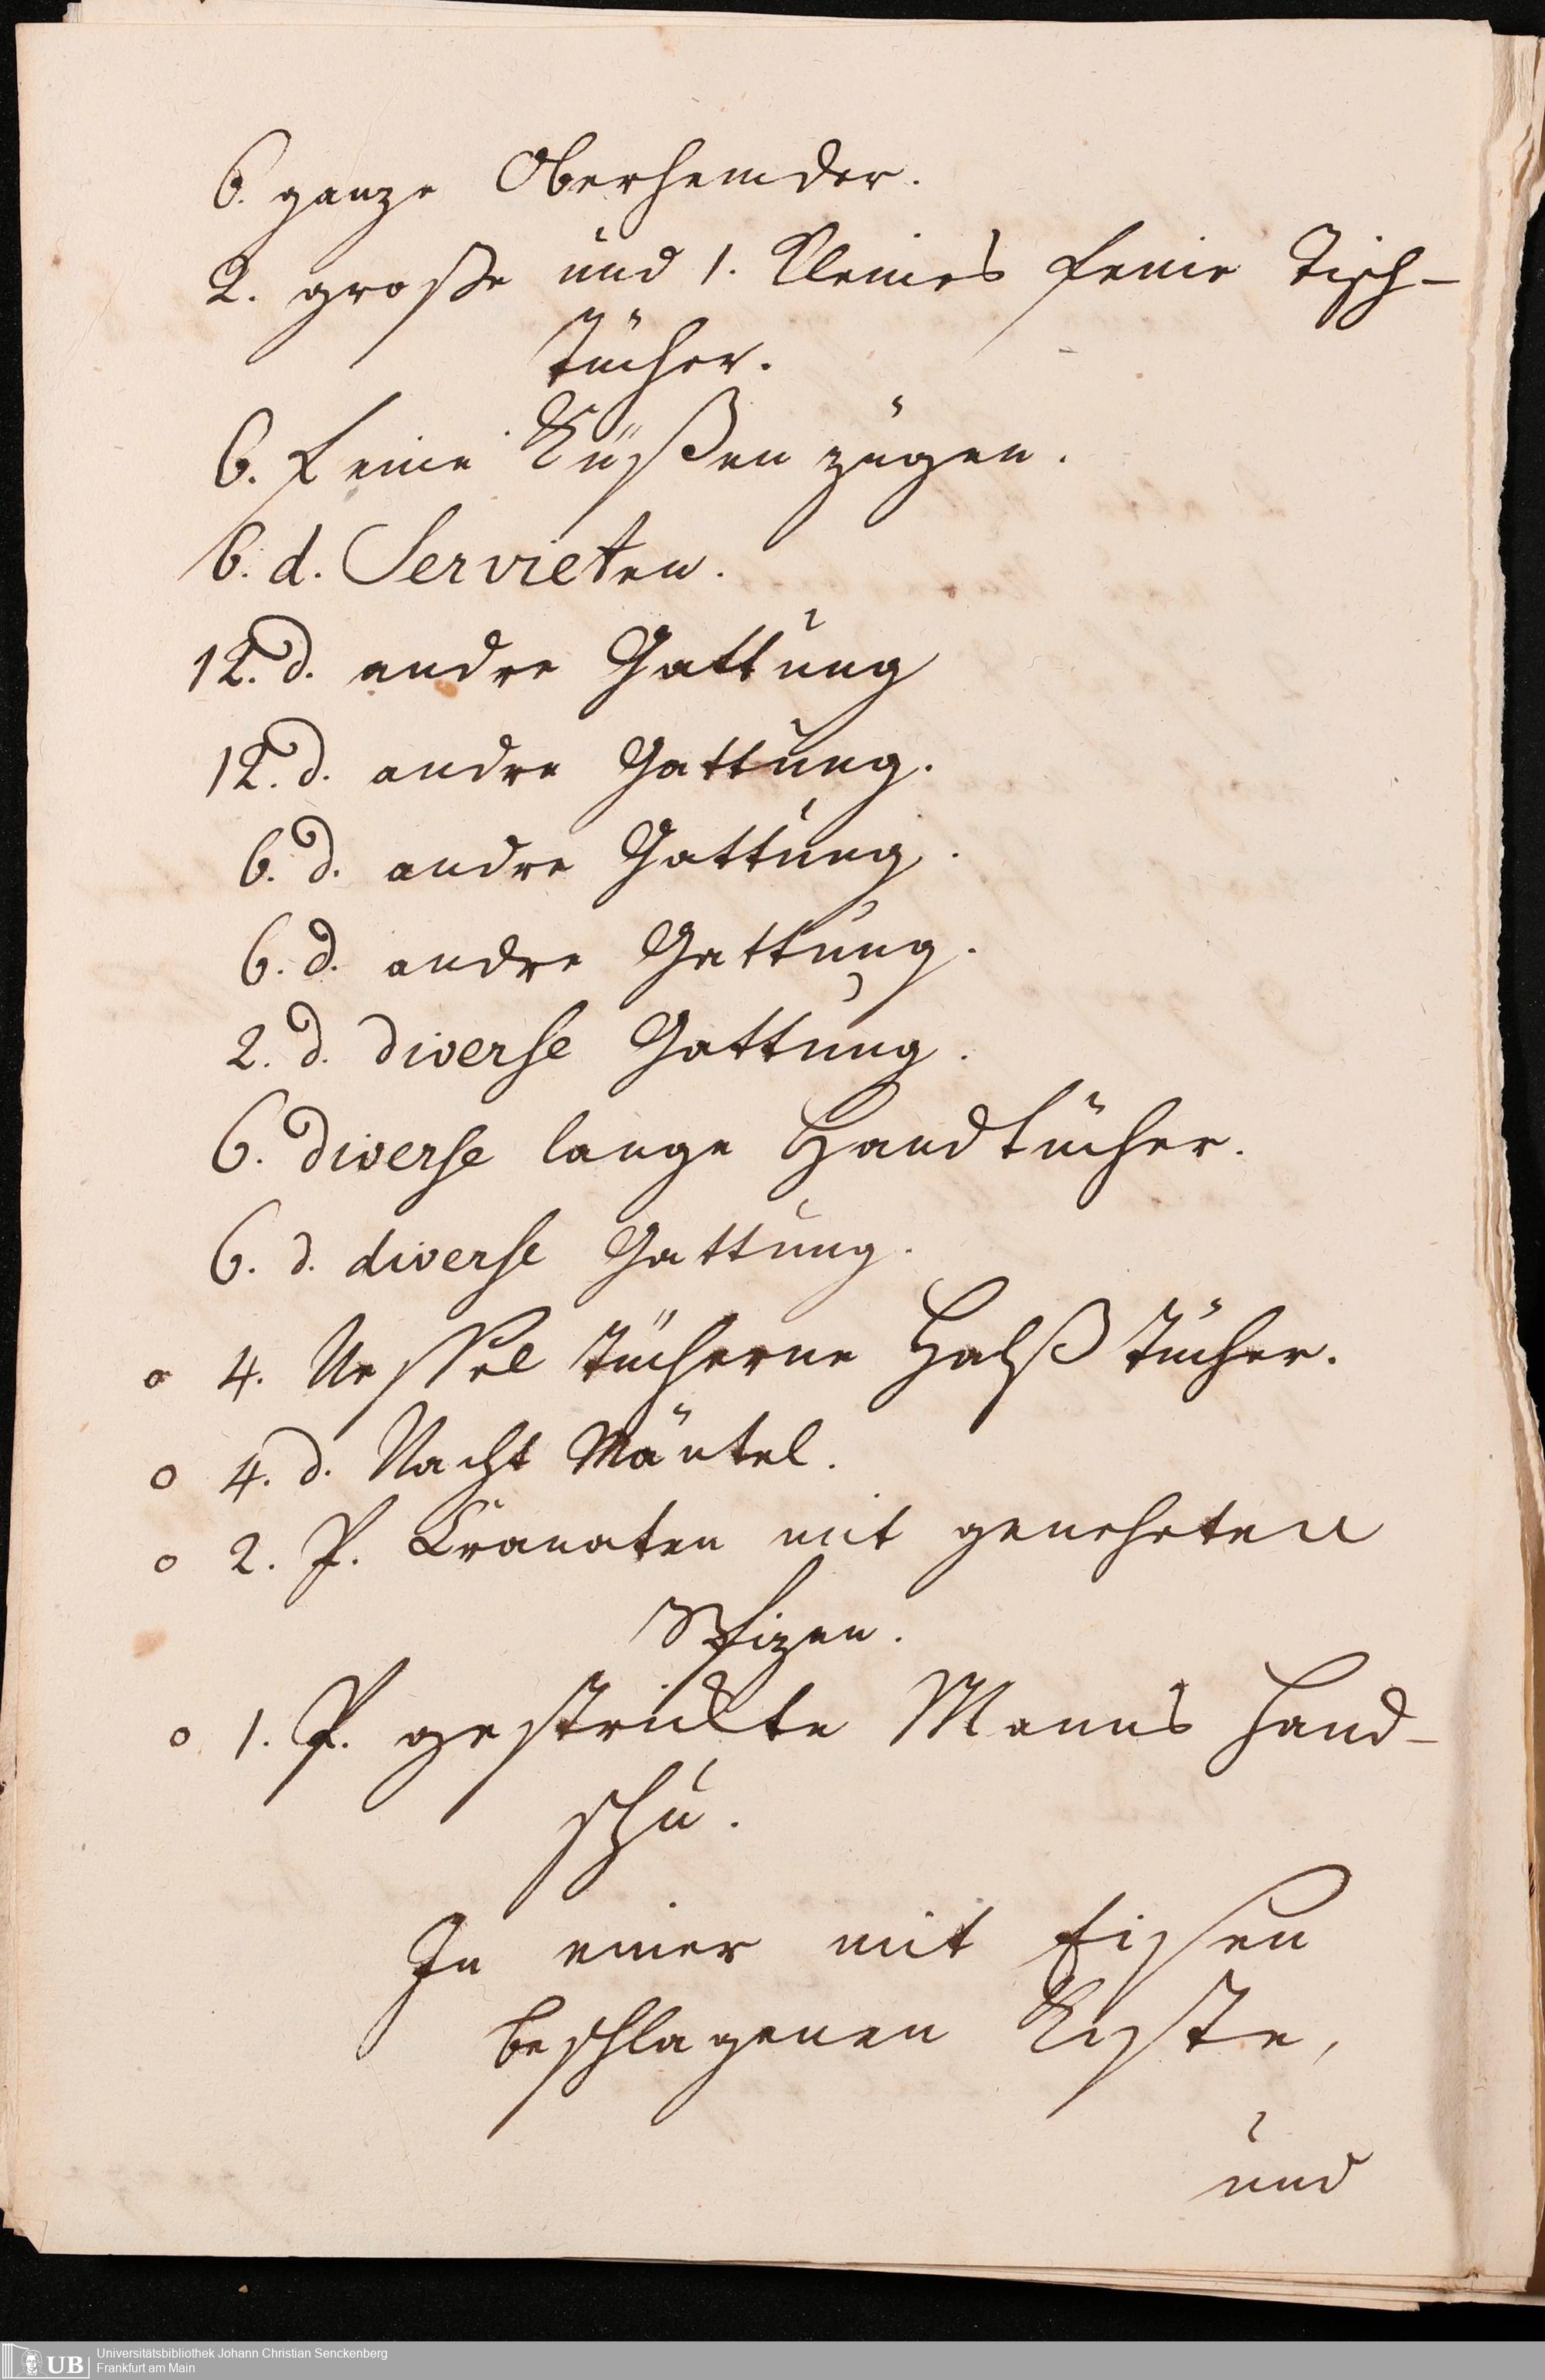 6. ganze Oberhemder.
2. große und 1. Kleines feine Tisch-
tücher.
6. feine Küßen zügen.
6. d. Servieten.
12. d. andre Gattung
12. d. andre Gattung.
6. d. andre Gattung.
6. d. andre Gattung.
2. d. diverse Gattung.
6. diverse lange Handtücher.
6. d. diverse Gattung.
o 4. Nessel tücherne Halß tücher.
o 4. d. Nacht Mäntel.
o 2. P. Cravaten mit genehten
Spizen.
o 1. P. gestrickte Manns Hand-
schu.
In einer mit Eisen
beschlagenen Kyste,
und
UB Universitätsbibliothek Johann Christian Senckenberg
Frankfurt am Main